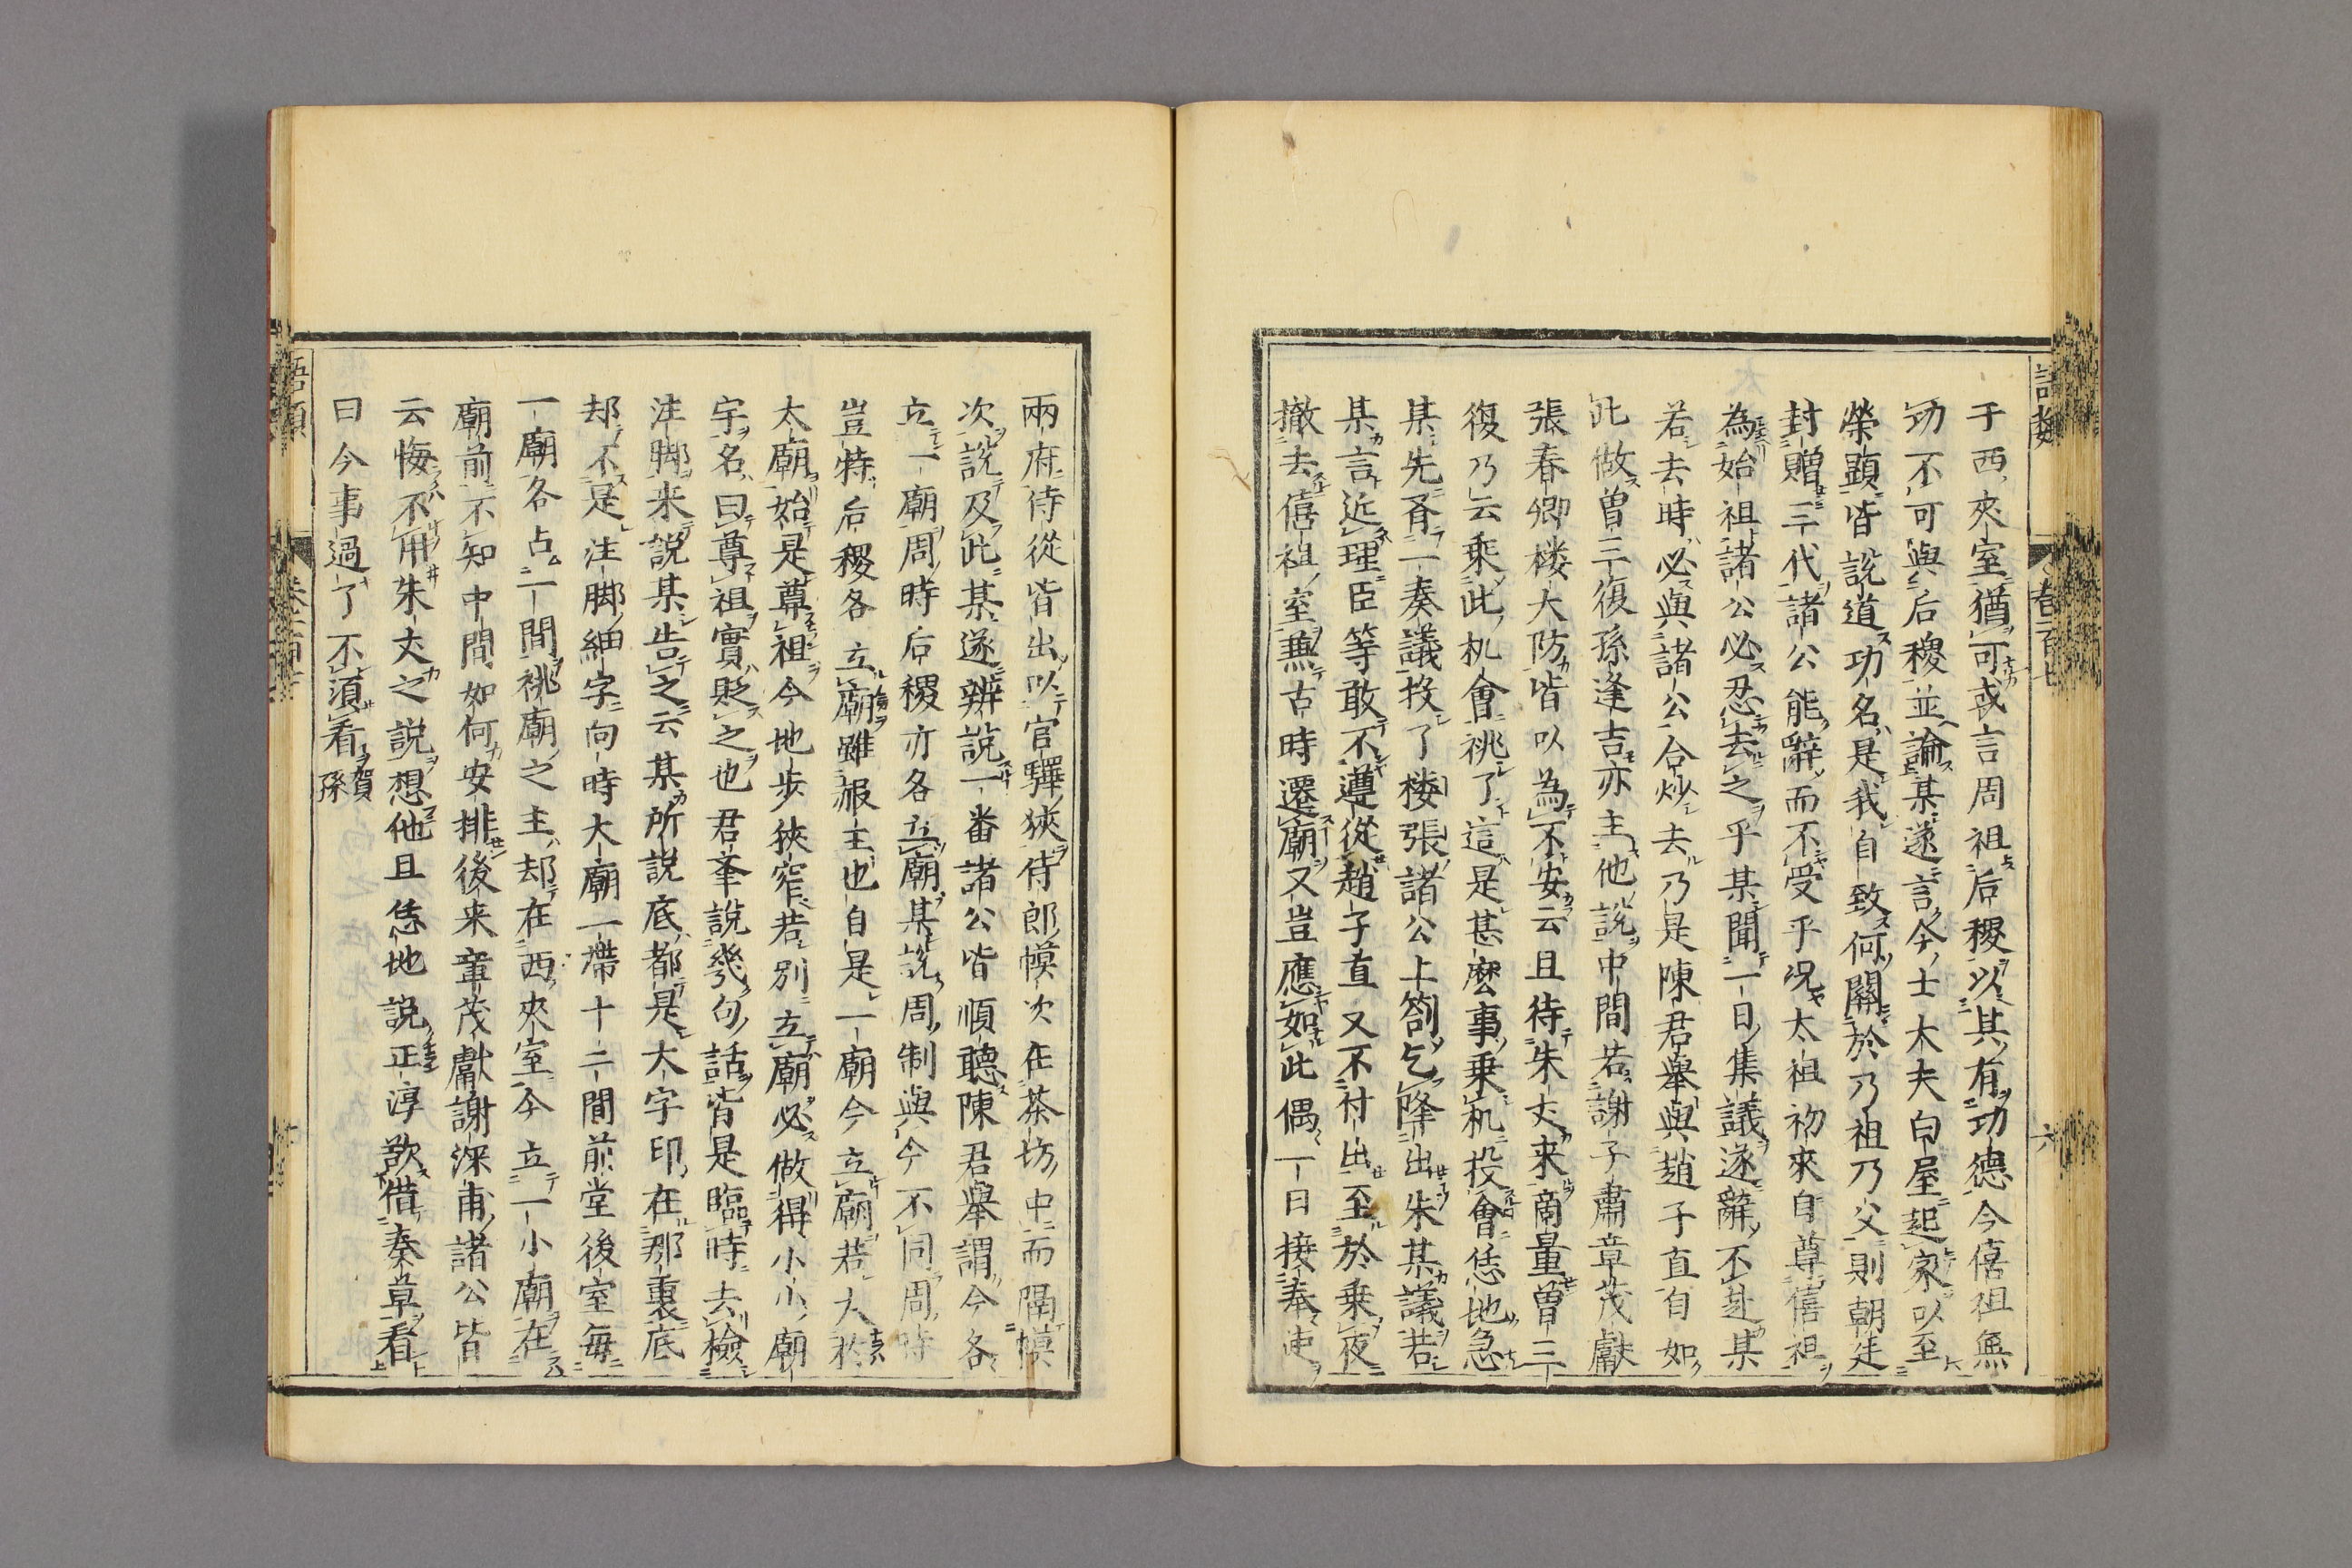 語類　卷一百七　六
于西夾室猶可或言周祖后稷以其有功德今僖祖無
功不可與后稷並論某遂言今士大夫白屋起家以至
榮顯皆說道功名是我自致何關於乃祖乃父則朝廷
封贈三代諸公能辭而不受乎况太祖初來自尊僖祖
為始祖諸公必忍去之乎某聞一日集議遂辭不赴某
若去時必與諸公合炒去乃是陳君舉與趙子直自如
此做曾三復孫逢吉亦主他說中間若謝子肅章茂獻
張春卿楼大防皆以為不安云且待朱丈来商量曾三
復乃云乘此机會祧了這是甚麽事乗机投會恁地急
某先有一奏議投了楼張諸公上劄乞降出朱某議若
某言近理臣等敢不遵從趙子直又不付出至於乗夜
撤去僖祖室兼古時遷廟又豈應如此偶一日接奉使
兩府侍從皆出以官驛狹侍郎幙次在茶坊中而隔幙
次說及此某遂辨說一番諸公皆順聽陳君舉謂今各
立一廟周時后稷亦各立廟某說周制與今不同周時
豈特后稷各立廟雖赧主也自是一廟今立廟若大於
太廟始是尊祖今地步狹窄若別立廟必做得小小廟
宇名曰尊祖實貶之也君峯說幾句話皆是臨時去檢
注脚来說某告之云某所說底都是大字印在那裏底
却不是注脚細字向時大廟一帶十二間前堂後室每
一廟各占一間祧廟之主却在西夾室今立一小廟在
廟前不知中間如何安排後来章茂獻謝深甫諸公皆
云悔不用朱丈之說想他且恁地說正淳欲借奏草看
曰今事過了不須看賀孫
語類　卷一百七